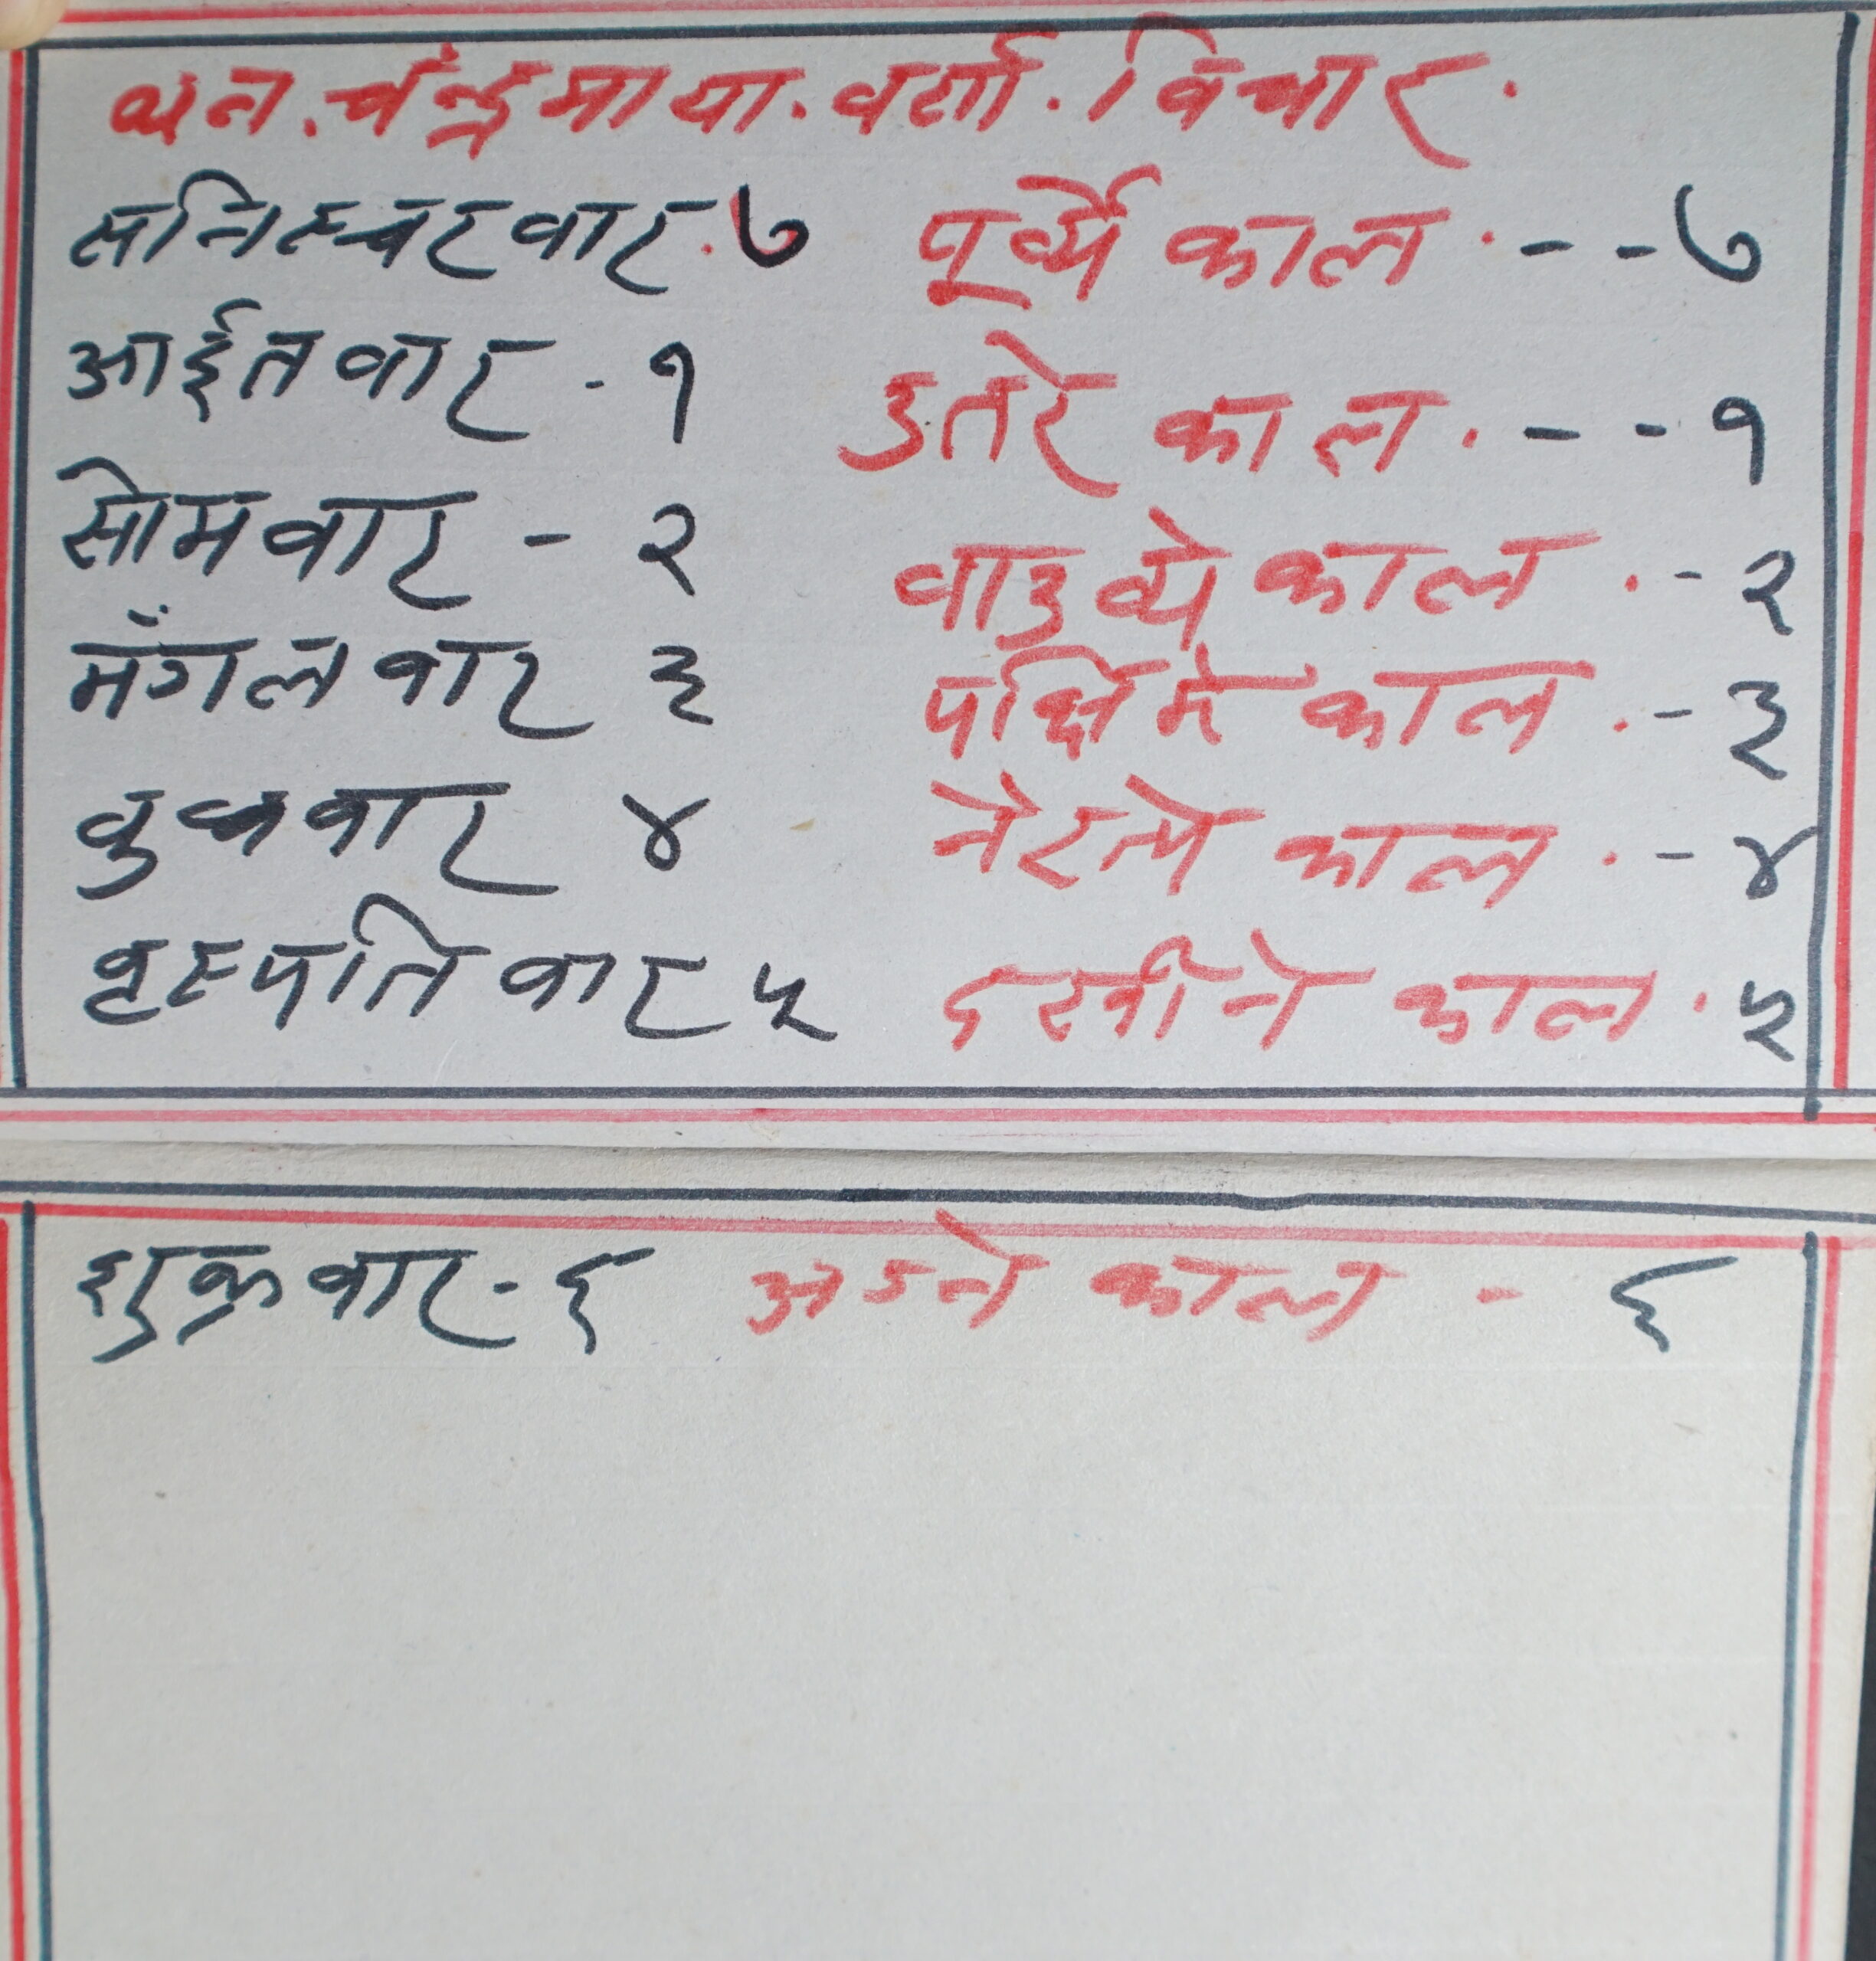 थन . चंन्द्रमाया . वर्ता . विचार .
सनिस्चरवार . ७ पूर्व्ये काल . - - ७
आईतवार - १ उतरे काल . - - १
सोमवार - २ वाउव्ये काल . - २
मंगलवार ३ पर्क्षिमे काल . - ३
वुधवार ४ नेरत्ये काल . - ४
वृहस्पतिवार ५ दखीने काल . ५
शुक्रवार - ६ अग्ने काल - ६